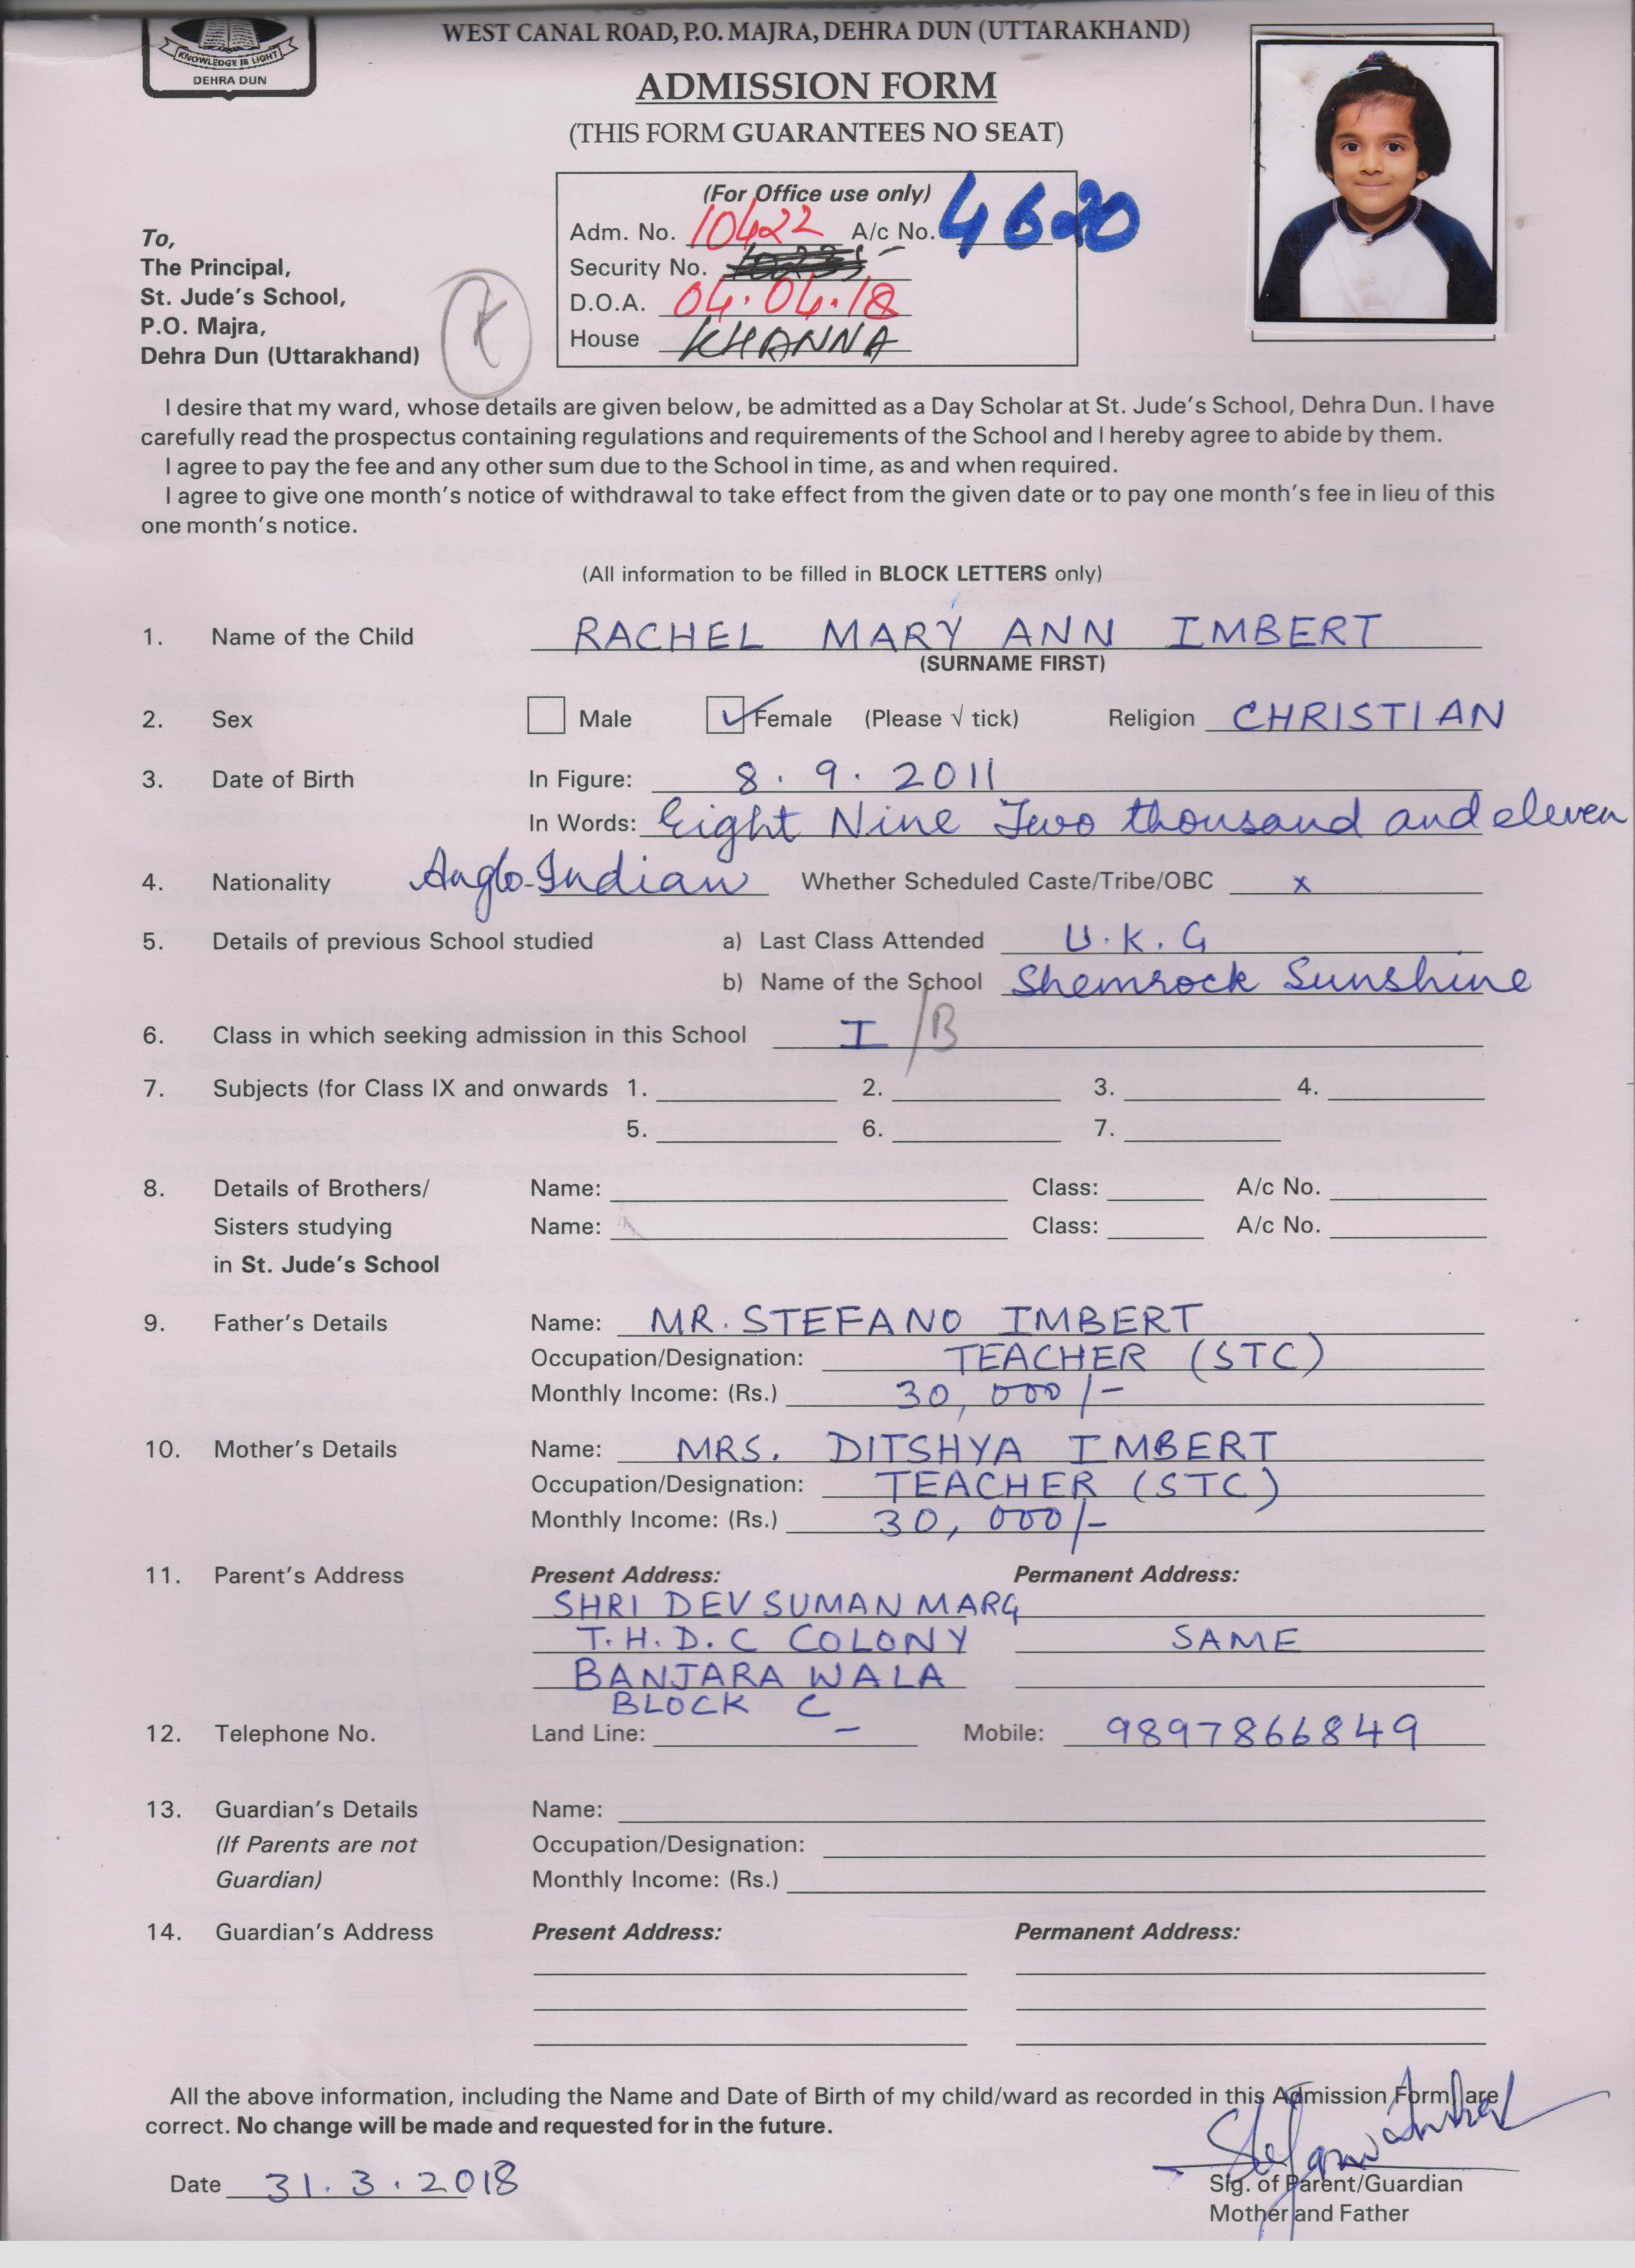 KNOWLEDGE IS LIGHT
DEHRA DUN
WEST CANAL ROAD, P.O. MAJRA, DEHRA DUN (UTTARAKHAND)
ADMISSION FORM
(THIS FORM GUARANTEES NO SEAT)
(For Office use only)
Adm. No. 10422 A/c No. 4620
Security No.
D.O.A. 04.04.18
House KHANNA
To,
The Principal,
St. Jude's School,
P.O. Majra,
Dehra Dun (Uttarakhand)
K
I desire that my ward, whose details are given below, be admitted as a Day Scholar at St. Jude's School, Dehra Dun. I have
carefully read the prospectus containing regulations and requirements of the School and I hereby agree to abide by them.
I agree to pay the fee and any other sum due to the School in time, as and when required.
I agree to give one month's notice of withdrawal to take effect from the given date or to pay one month's fee in lieu of this
one month's notice.
(All information to be filled in BLOCK LETTERS only)
1. Name of the Child RACHEL MARY ANN IMBERT
(SURNAME FIRST)
2. Sex Male ✓ Female (Please √ tick) Religion CHRISTIAN
3. Date of Birth In Figure: 8.9.2011
In Words: Eight Nine Two thousand and eleven
4. Nationality Anglo-Indian Whether Scheduled Caste/Tribe/OBC x
5. Details of previous School studied a) Last Class Attended U.K.G
b) Name of the School Shemrock Sunshine
6. Class in which seeking admission in this School I /B
7. Subjects (for Class IX and onwards 1. 2. 3. 4.
5. 6. 7.
8. Details of Brothers/ Name: Class: A/c No.
Sisters studying Name: Class: A/c No.
in St. Jude's School
9. Father's Details Name: MR. STEFANO IMBERT
Occupation/Designation: TEACHER (STC)
Monthly Income: (Rs.) 30,000/-
10. Mother's Details Name: MRS. DITSHYA IMBERT
Occupation/Designation: TEACHER (STC)
Monthly Income: (Rs.) 30,000/-
11. Parent's Address Present Address: Permanent Address:
SHRI DEV SUMAN MARG
T.H.D.C COLONY SAME
BANJARA WALA
BLOCK C
12. Telephone No. Land Line: - Mobile: 9897866849
13. Guardian's Details Name:
(If Parents are not Occupation/Designation:
Guardian) Monthly Income: (Rs.)
14. Guardian's Address Present Address: Permanent Address:
All the above information, including the Name and Date of Birth of my child/ward as recorded in this Admission Form are
correct. No change will be made and requested for in the future.
Date 31.3.2018
Sig. of Parent/Guardian
Mother and Father